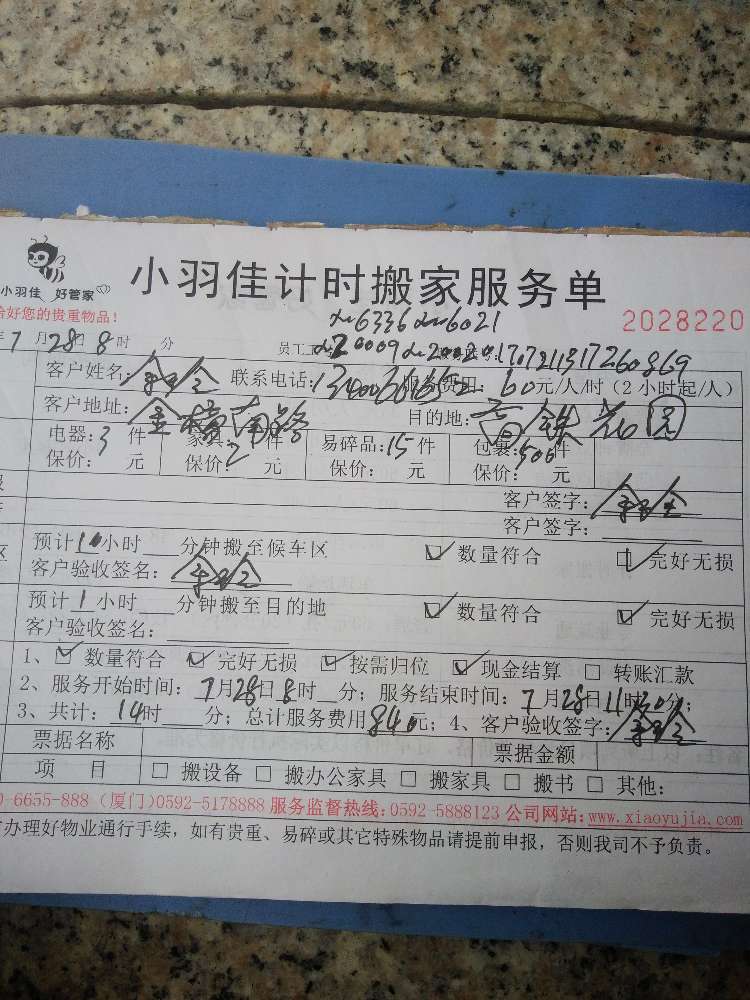 小羽佳 好管家
小羽佳计时搬家服务单
恰好您的贵重物品!
2028220
年7月28日8时 分
员工
1707211317260869
客户姓名: 联系电话: 服务费用:60元/人/时(2小时起/人)
客户地址: 南路 目的地: 高铁花园
电器:3件 家具:2件 易碎品:15件 包裹:500件
保价: 元 保价: 元 保价: 元 保价: 元
客户签字:
客户签字:
预计1小时 分钟搬至候车区 数量符合 完好无损
客户验收签名:
预计1小时 分钟搬至目的地 数量符合 完好无损
客户验收签名:
1、数量符合 完好无损 按需归位 现金结算 转账汇款
2、服务开始时间:7月28日8时 分;服务结束时间:7月28日11时30分;
3、共计:14时 分;总计服务费用840元;4、客户验收签字:
票据名称 票据金额
项 目 搬设备 搬办公家具 搬家具 搬书 其他:
0-6655-888(厦门)0592-5178888服务监督热线:0592-5888123公司网站:www.xiaoyujia.com
办理好物业通行手续,如有贵重、易碎或其它特殊物品请提前申报,否则我司不予负责。